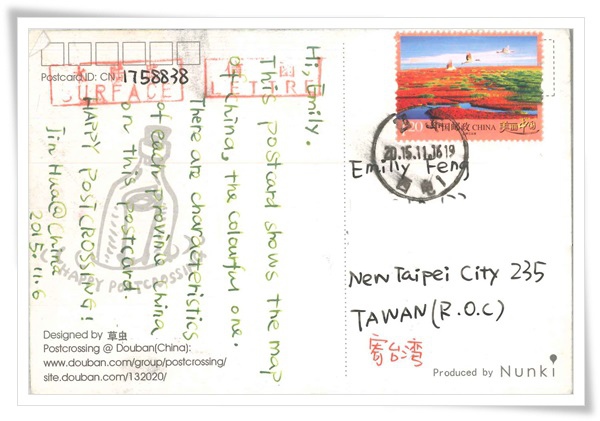 Postcard ID: CN- 1758838
SURFACE
LETTRE
Hi, Emily.
This postcard shows the map
of China, the colourful one.
There are characteristics
of each province China
on this postcard.
HAPPY POSTCROSSING!
Jin Hua@China
2015.11.6
(HAPPY POSTCROSSING)
Designed by 草虫
Postcrossing @ Douban(China):
www.douban.com/group/postcrossing/
site.douban.com/132020/
中国邮政 CHINA
美丽中国
20.15.11.1619
Emilly Feng
New Taipei City 235
TAWAN(R.O.C)
寄台湾
Produced by Nunki